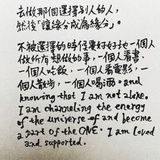 去做那個選擇別人的人，
然後「讓緣分成為緣分」。
不被選擇的時候要好好地一個人
做所有想做的事，一個人看書、
一個人吃飯，一個人看電影，
一個人散步，一個人喝酒。and
knowing that I am not alone,
I am channeling the energy
of the universe of and become
a part of the ONE. I am loved
and supported.